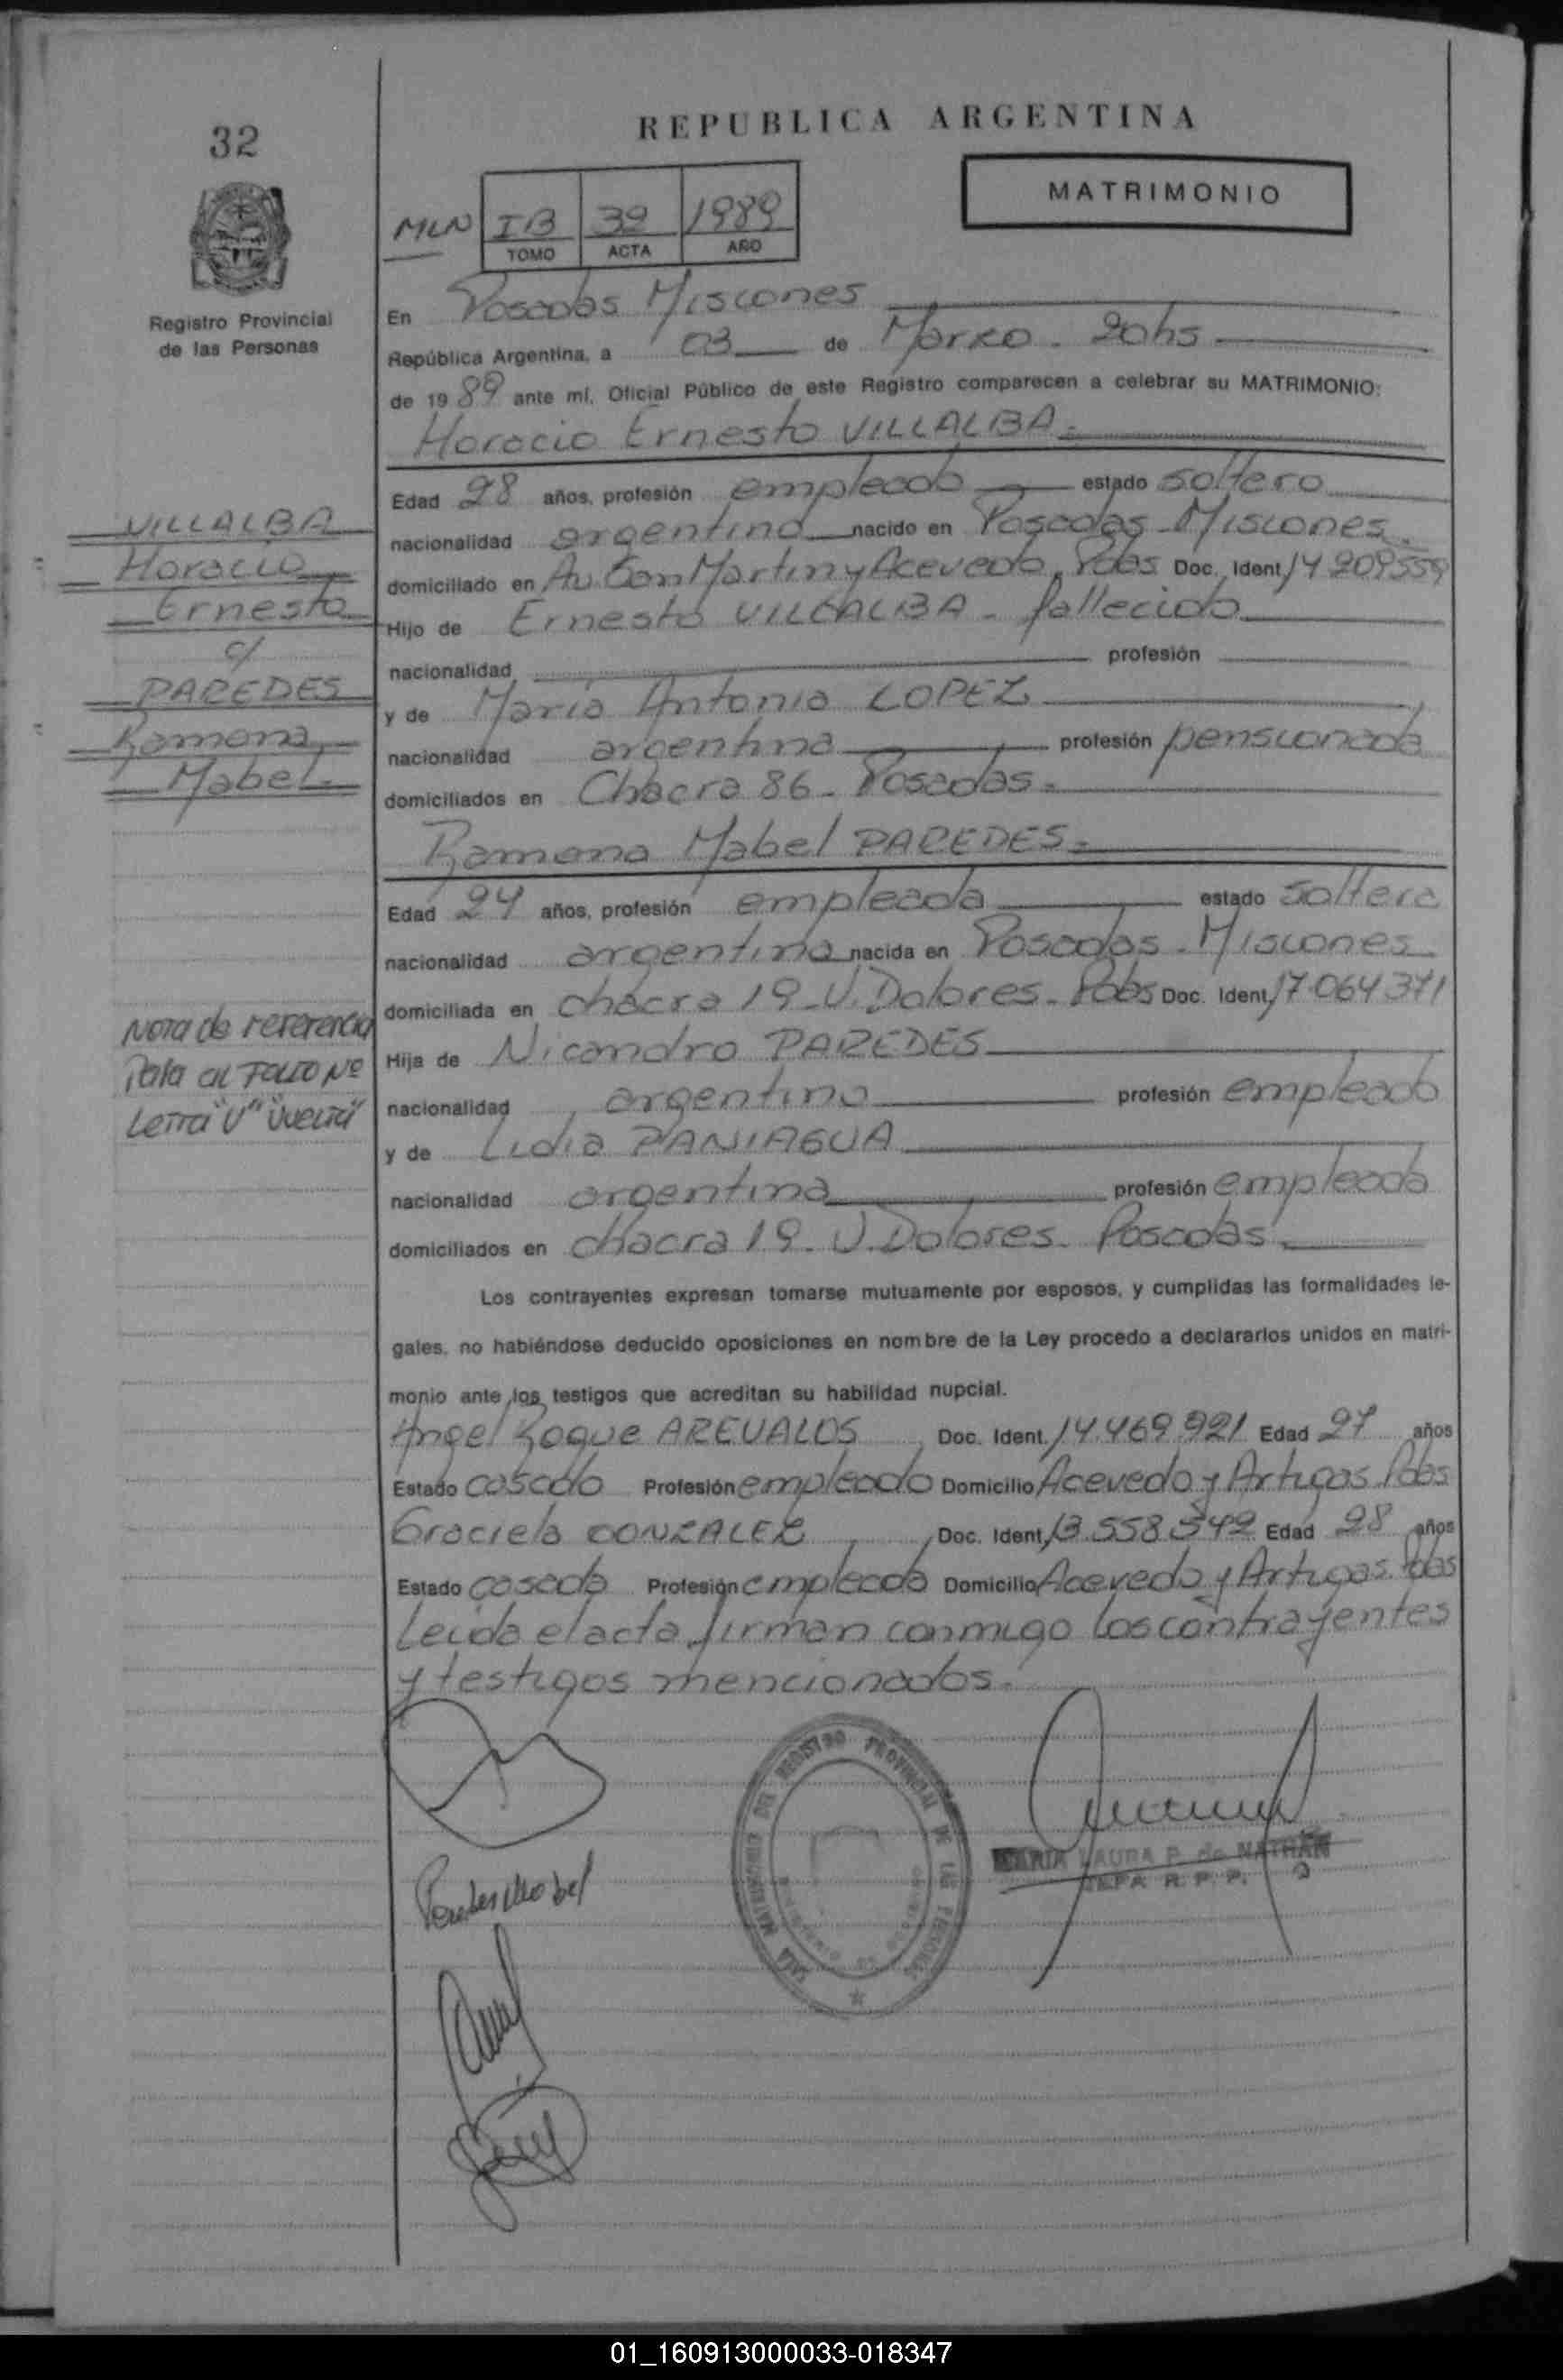 32
REPUBLICA ARGENTINA
MATRIMONIO
MLN IB 32 1989
TOMO ACTA AÑO
Registro Provincial
de las Personas
En Posadas Misiones
República Argentina, a 03 de Marzo - 20hs
de 1989 ante mí, Oficial Público de este Registro comparecen a celebrar su MATRIMONIO:
Horacio Ernesto VILLALBA.
Edad 28 años, profesión empleado estado soltero
nacionalidad argentina nacido en Posadas - Misiones.
domiciliado en Av. San Martin y Acevedo, Pdas Doc. Ident. 14 209559
Hijo de Ernesto VILLALBA - fallecido
nacionalidad profesión
y de María Antonia LOPEZ
nacionalidad argentina profesión pensionada
domiciliados en Chacra 86 - Posadas.
VILLALBA
Horacio
Ernesto
c/
PAREDES
Ramona
Mabel.
Ramona Mabel PAREDES.
Edad 24 años, profesión empleada estado soltera
nacionalidad argentina nacida en Posadas - Misiones
domiciliada en chacra 19 - V. Dolores - Pdas Doc. Ident. 17.064371
Hija de Nicandro PAREDES
nacionalidad argentino profesión empleado
y de Lidia PANIAGUA
nacionalidad argentina profesión empleada
domiciliados en chacra 19 - V. Dolores - Posadas.
Nota de referencia
Pasa al Folio Nº
Letra "V" "Vuelta"
Los contrayentes expresan tomarse mutuamente por esposos, y cumplidas las formalidades le-
gales, no habiéndose deducido oposiciones en nombre de la Ley procedo a declararlos unidos en matri-
monio ante los testigos que acreditan su habilidad nupcial.
Angel Roque AREVALOS Doc. Ident. 14.469.921 Edad 27 años
Estado casado Profesión empleado Domicilio Acevedo y Artigas Pdas
Graciela GONZALEZ Doc. Ident. 13.558.542 Edad 28 años
Estado casada Profesión empleada Domicilio Acevedo y Artigas. Pdas
Leida el acta firman conmigo los contrayentes
y testigos mencionados.
DEL REGISTRO PROVINCIAL DE LAS PERSONAS
MARIA LAURA P. de NATHAN
JEFA R. P. P.
Paredes Mabel
01_160913000033-018347